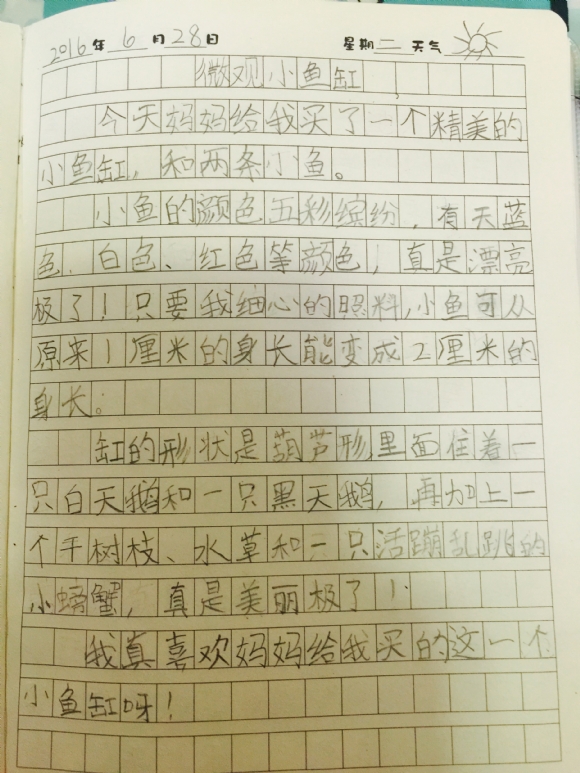 2016年6月28日 星期二 天气
微观小鱼缸
今天妈妈给我买了一个精美的
小鱼缸，和两条小鱼。
小鱼的颜色五彩缤纷，有天蓝
色、白色、红色等颜色，真是漂亮
极了！只要我细心的照料，小鱼可从
原来1厘米的身长能变成2厘米的
身长。
缸的形状是葫芦形，里面住着一
只白天鹅和一只黑天鹅，再加上一
个干树枝、水草和一只活蹦乱跳的
小螃蟹，真是美丽极了！
我真喜欢妈妈给我买的这一个
小鱼缸呀！